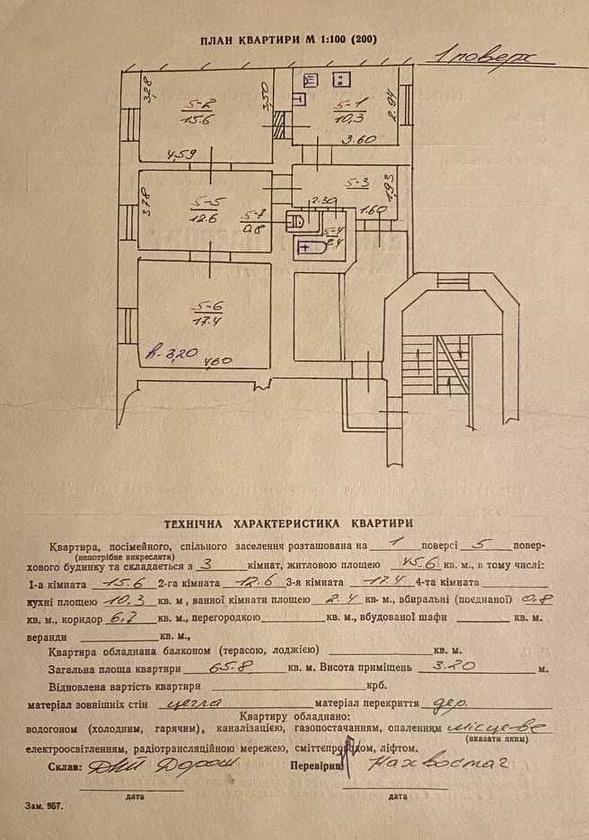 ПЛАН КВАРТИРИ М 1:100 (200)
1 поверх
3,28
5-2
15.6
3,50
5-1
10,3
2.94
3.60
4,59
5-3
1,93
3,78
5-5
12.6
5-7
0,8
2.30
5-4
2.4
1,60
5-6
17.4
h-3,20
4,60
ТЕХНІЧНА ХАРАКТЕРИСТИКА КВАРТИРИ
Квартира, посімейного, спільного заселення розташована на 1 поверсі 5 повер-
(непотрібне викреслити)
хового будинку та складається з 3 кімнат, житловою площею 45.6 кв. м., в тому числі:
1-а кімната 15.6 2-га кімната 12.6 3-я кімната 17.4 4-та кімната
кухні площею 10.3 кв. м, ванної кімнати площею 2.4 кв. м., вбиральні (поєднаної) 0.8
кв. м., коридор 6,7 кв. м., перегородкою кв. м., вбудованої шафи кв. м.
веранди кв. м.,
Квартира обладнана балконом (терасою, лоджією) кв. м.
Загальна площа квартири 65.8 кв. м. Висота приміщень 3.20 м.
Відновлена вартість квартири крб.
матеріал зовнішніх стін цегла матеріал перекриття дер.
Квартиру обладнано:
водогоном (холодним, гарячим), каналізацією, газопостачанням, опаленням місцеве
(вказати яким)
електроосвітленням, радіотрансляційною мережею, сміттепроводом, ліфтом.
Склав: Дорош Перевірив
дата дата
Зам. 967.